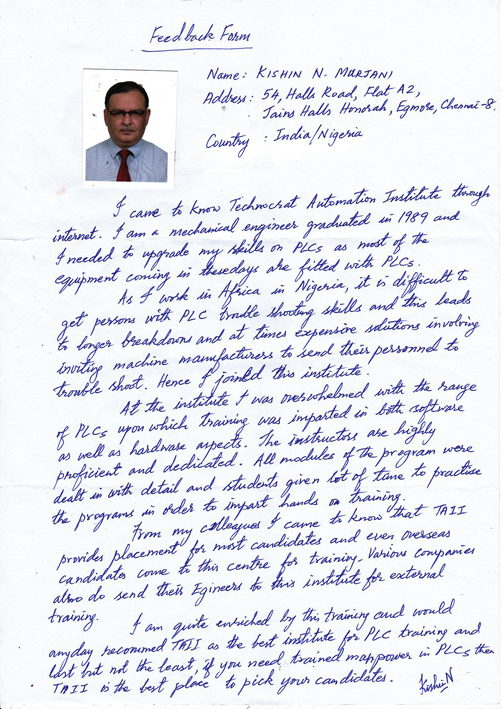 Feedback Form
Name: KISHIN N. MURJANI
Address: 54, Halls Road, Flat A2,
Jains Halls Honorah, Egmore, Chennai-8.
Country : India/Nigeria
I came to know Technocrat Automation Institute through
internet. I am a mechanical engineer graduated in 1989 and
I needed to upgrade my skills on PLCs as most of the
equipment coming in thesedays are fitted with PLCs.
As I work in Africa in Nigeria, it is difficult to
get persons with PLC trouble shooting skills and this leads
to longer breakdowns and at times expensive solutions involving
inviting machine manufacturers to send their personnel to
trouble shoot. Hence I joined this institute.
At the institute I was overwhelmed with the range
of PLCs upon which training was imparted in both software
as well as hardware aspects. The instructors are highly
proficient and dedicated. All modules of the program were
dealt in with detail and students given lot of time to practise
the programs in order to impart hands on training.
From my colleagues I came to know that TAII
provides placement for most candidates and even overseas
candidates come to this centre for training. Various companies
also do send their Egineers to this institute for external
training.
I am quite enriched by this training and would
anyday recommed TAII as the best institute for PLC training and
last but not the least, if you need trained manpower in PLCs then
TAII is the best place to pick your candidates.
Kishin N